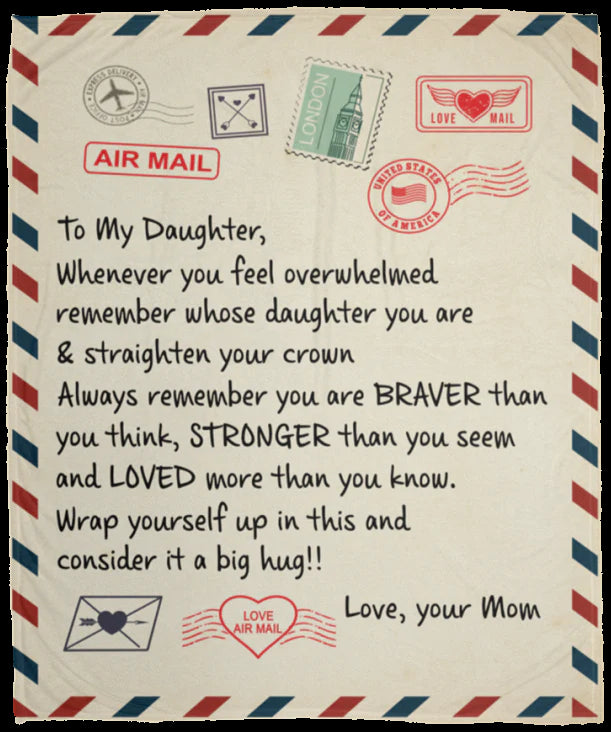 EXPRESS DELIVERY • AIR MAIL • POST OFFICE •
LONDON
LOVE MAIL
AIR MAIL
UNITED STATES
OF AMERICA
To My Daughter,
Whenever you feel overwhelmed
remember whose daughter you are
& straighten your crown
Always remember you are BRAVER than
you think, STRONGER than you seem
and LOVED more than you know.
Wrap yourself up in this and
consider it a big hug!!
LOVE
AIR MAIL
Love, your Mom